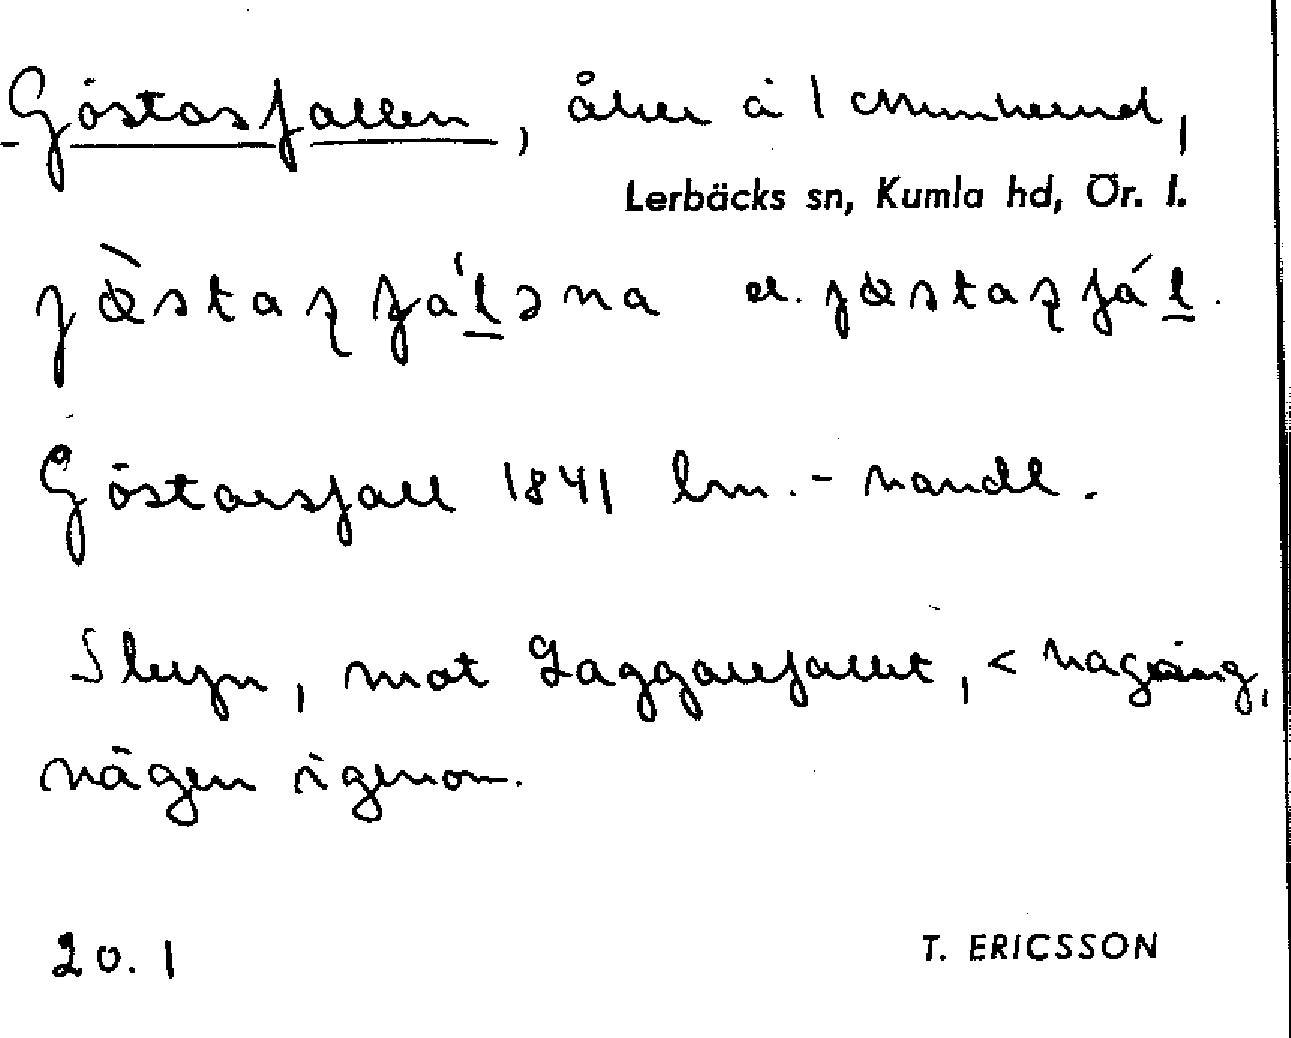 Göstasfallen, åker å 1
Lerbäcks sn, Kumla hd, Ör. l.
jɵ̀stasfáḷəna el. jɵstasfáḷ.
Göstarsfall 1841 lm.-handl.
Slejn, mot Laggarefallet, < hagäng,
vägen igenom.
20. 1
T. ERICSSON